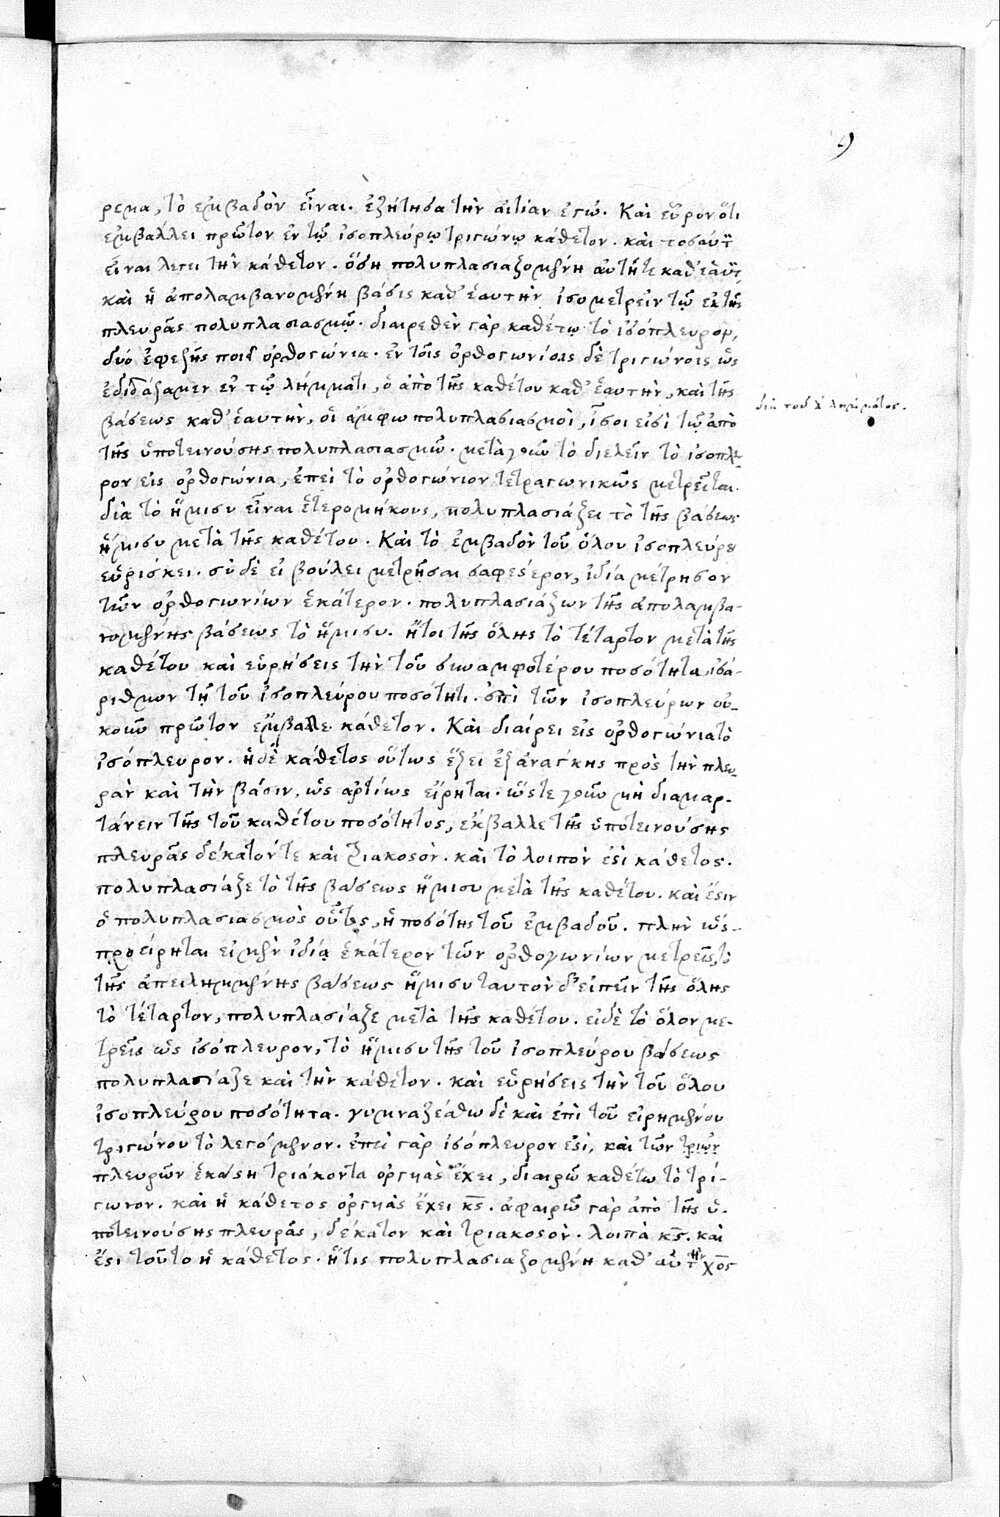 9
ρεμα, τὸ ἐμβαδὸν εἶναι. ἐζήτησα τὴν αἰτίαν ἐγώ. Καὶ εὗρον ὅτι
ἐμβάλλει πρῶτον ἐν τῷ ἰσοπλεύρῳ τριγώνῳ κάθετον. καὶ τοσαύτην
εἶναι λέγει τὴν κάθετον. ὅση πολυπλασιαζομένη αὐτήτε καθ' ἑαυτὴν
καὶ ἡ ἀπολαμβανομένη βάσις καθ' ἑαυτὴν ἰσομετρεῖν τῷ ἐκ τῆς
πλευρᾶς πολυπλασιασμῷ. διαιρεθὲν γὰρ καθέτῳ τὸ ἰσόπλευρον,
δύο ἐφεξῆς ποιεῖ ὀρθογώνια. ἐν τοῖς ὀρθογωνίοις δὲ τριγώνοις ὡς
ἐδιδάξαμεν ἐν τῷ λήμματι, ὁ ἀπὸ τῆς καθέτου καθ' ἑαυτὴν, καὶ τῆς
διὰ τοῦ λημμάτος.
βάσεως καθ' ἑαυτὴν, οἱ ἄμφω πολυπλασιασμοὶ, ἴσοι εἰσὶ τῷ ἀπὸ
τῆς ὑποτεινούσης πολυπλασιασμῷ. μετὰ γοῦν τὸ διελεῖν τὸ ἰσόπλευ
ρον εἰς ὀρθογώνια, ἐπεὶ τὸ ὀρθογώνιον τετραγωνικῶς μετρεῖται.
διὰ τὸ ἥμισυ εἶναι ἑτερομήκους, πολυπλασιάζει τὸ τῆς βάσεως
ἥμισυ μετὰ τῆς καθέτου. Καὶ τὸ ἐμβαδὸν τοῦ ὅλου ἰσοπλεύρου
εὑρίσκει. σὺ δὲ εἰ βούλει μετρῆσαι σαφέστερον, ἰδία μέτρησον
τῶν ὀρθογωνίων ἑκάτερον. πολυπλασιάζων τῆς ἀπολαμβα-
νομένης βάσεως τὸ ἥμισυ. ἤτοι τῆς ὅλης τὸ τέταρτον μετὰ τῆς
καθέτου καὶ εὑρήσεις τὴν τοῦ συναμφοτέρου ποσότητα, ἰσά-
ριθμον τῇ τοῦ ἰσοπλεύρου ποσότητι. ἐπὶ τῶν ἰσοπλεύρων οὐ-
κοῦν πρῶτον ἔμβαλλε κάθετον. Καὶ διαίρει εἰς ὀρθογώνια τὸ
ἰσόπλευρον. ἡ δὲ κάθετος οὕτως ἕξει ἐξανάγκης πρὸς τὴν πλευ
ρὰν καὶ τὴν βάσιν, ὡς ἀρτίως εἴρηται. ὥστε γοῦν μὴ διαμαρ-
τάνειν τῆς τοῦ καθέτου ποσότητος, ἔκβαλλε τῆς ὑποτεινούσης
πλευρᾶς δέκατόν τε καὶ τριακοστόν. καὶ τὸ λοιπόν ἐστὶ κάθετος.
πολυπλασίαζε τὸ τῆς βάσεως ἥμισυ μετὰ τῆς καθέτου. καὶ ἔστιν
ὁ πολυπλασιασμὸς οὗτος, ἡ ποσότης τοῦ ἐμβαδοῦ. πλὴν ὡς-
προείρηται εἰ μὲν ἰδίᾳ ἑκάτερον τῶν ὀρθογωνίων μετρεῖς, τὸ
τῆς ἀπειλημμένης βάσεως ἥμισυ ταυτὸν δ' εἰπεῖν τῆς ὅλης
τὸ τέταρτον, πολυπλασίαζε μετὰ τῆς καθέτου. εἰ δὲ τὸ ὅλον με-
τρεῖς ὡς ἰσόπλευρον, τὸ ἥμισυ τῆς τοῦ ἰσοπλεύρου βάσεως
πολυπλασίαζε καὶ τὴν κάθετον. καὶ εὑρήσεις τὴν τοῦ ὅλου
ἰσοπλεύρου ποσότητα. γυμναζέσθω δὲ καὶ ἐπὶ τοῦ εἰρημένου
τριγώνου τὸ λεγόμενον. ἐπεὶ γὰρ ἰσόπλευρον ἐστὶ, καὶ τῶν τριῶν
πλευρῶν ἑκάστη τριάκοντα ὀργυιὰς ἔχει, διαιρῶ καθέτῳ τὸ τρί-
γωνον. καὶ ἡ κάθετος ὀργυιὰς ἔχει κϛ. ἀφαιρῶ γὰρ ἀπὸ τῆς ὑ-
ποτεινούσης πλευρᾶς, δέκατον καὶ τριακοστόν. λοιπὰ κϛ. καὶ
ἔστι τοῦτο ἡ κάθετος. ἥτις πολυπλασιαζομένη καθ' αὑτὴν χος